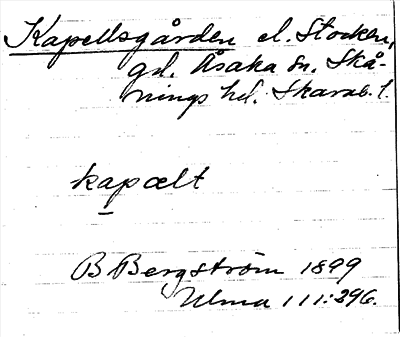 Kapellsgården el. Stocken,
gd. Åsaka sn. Skå-
nings hd. Skarab. l.
kapælt
B Bergström 1899
Ulma 111:296.